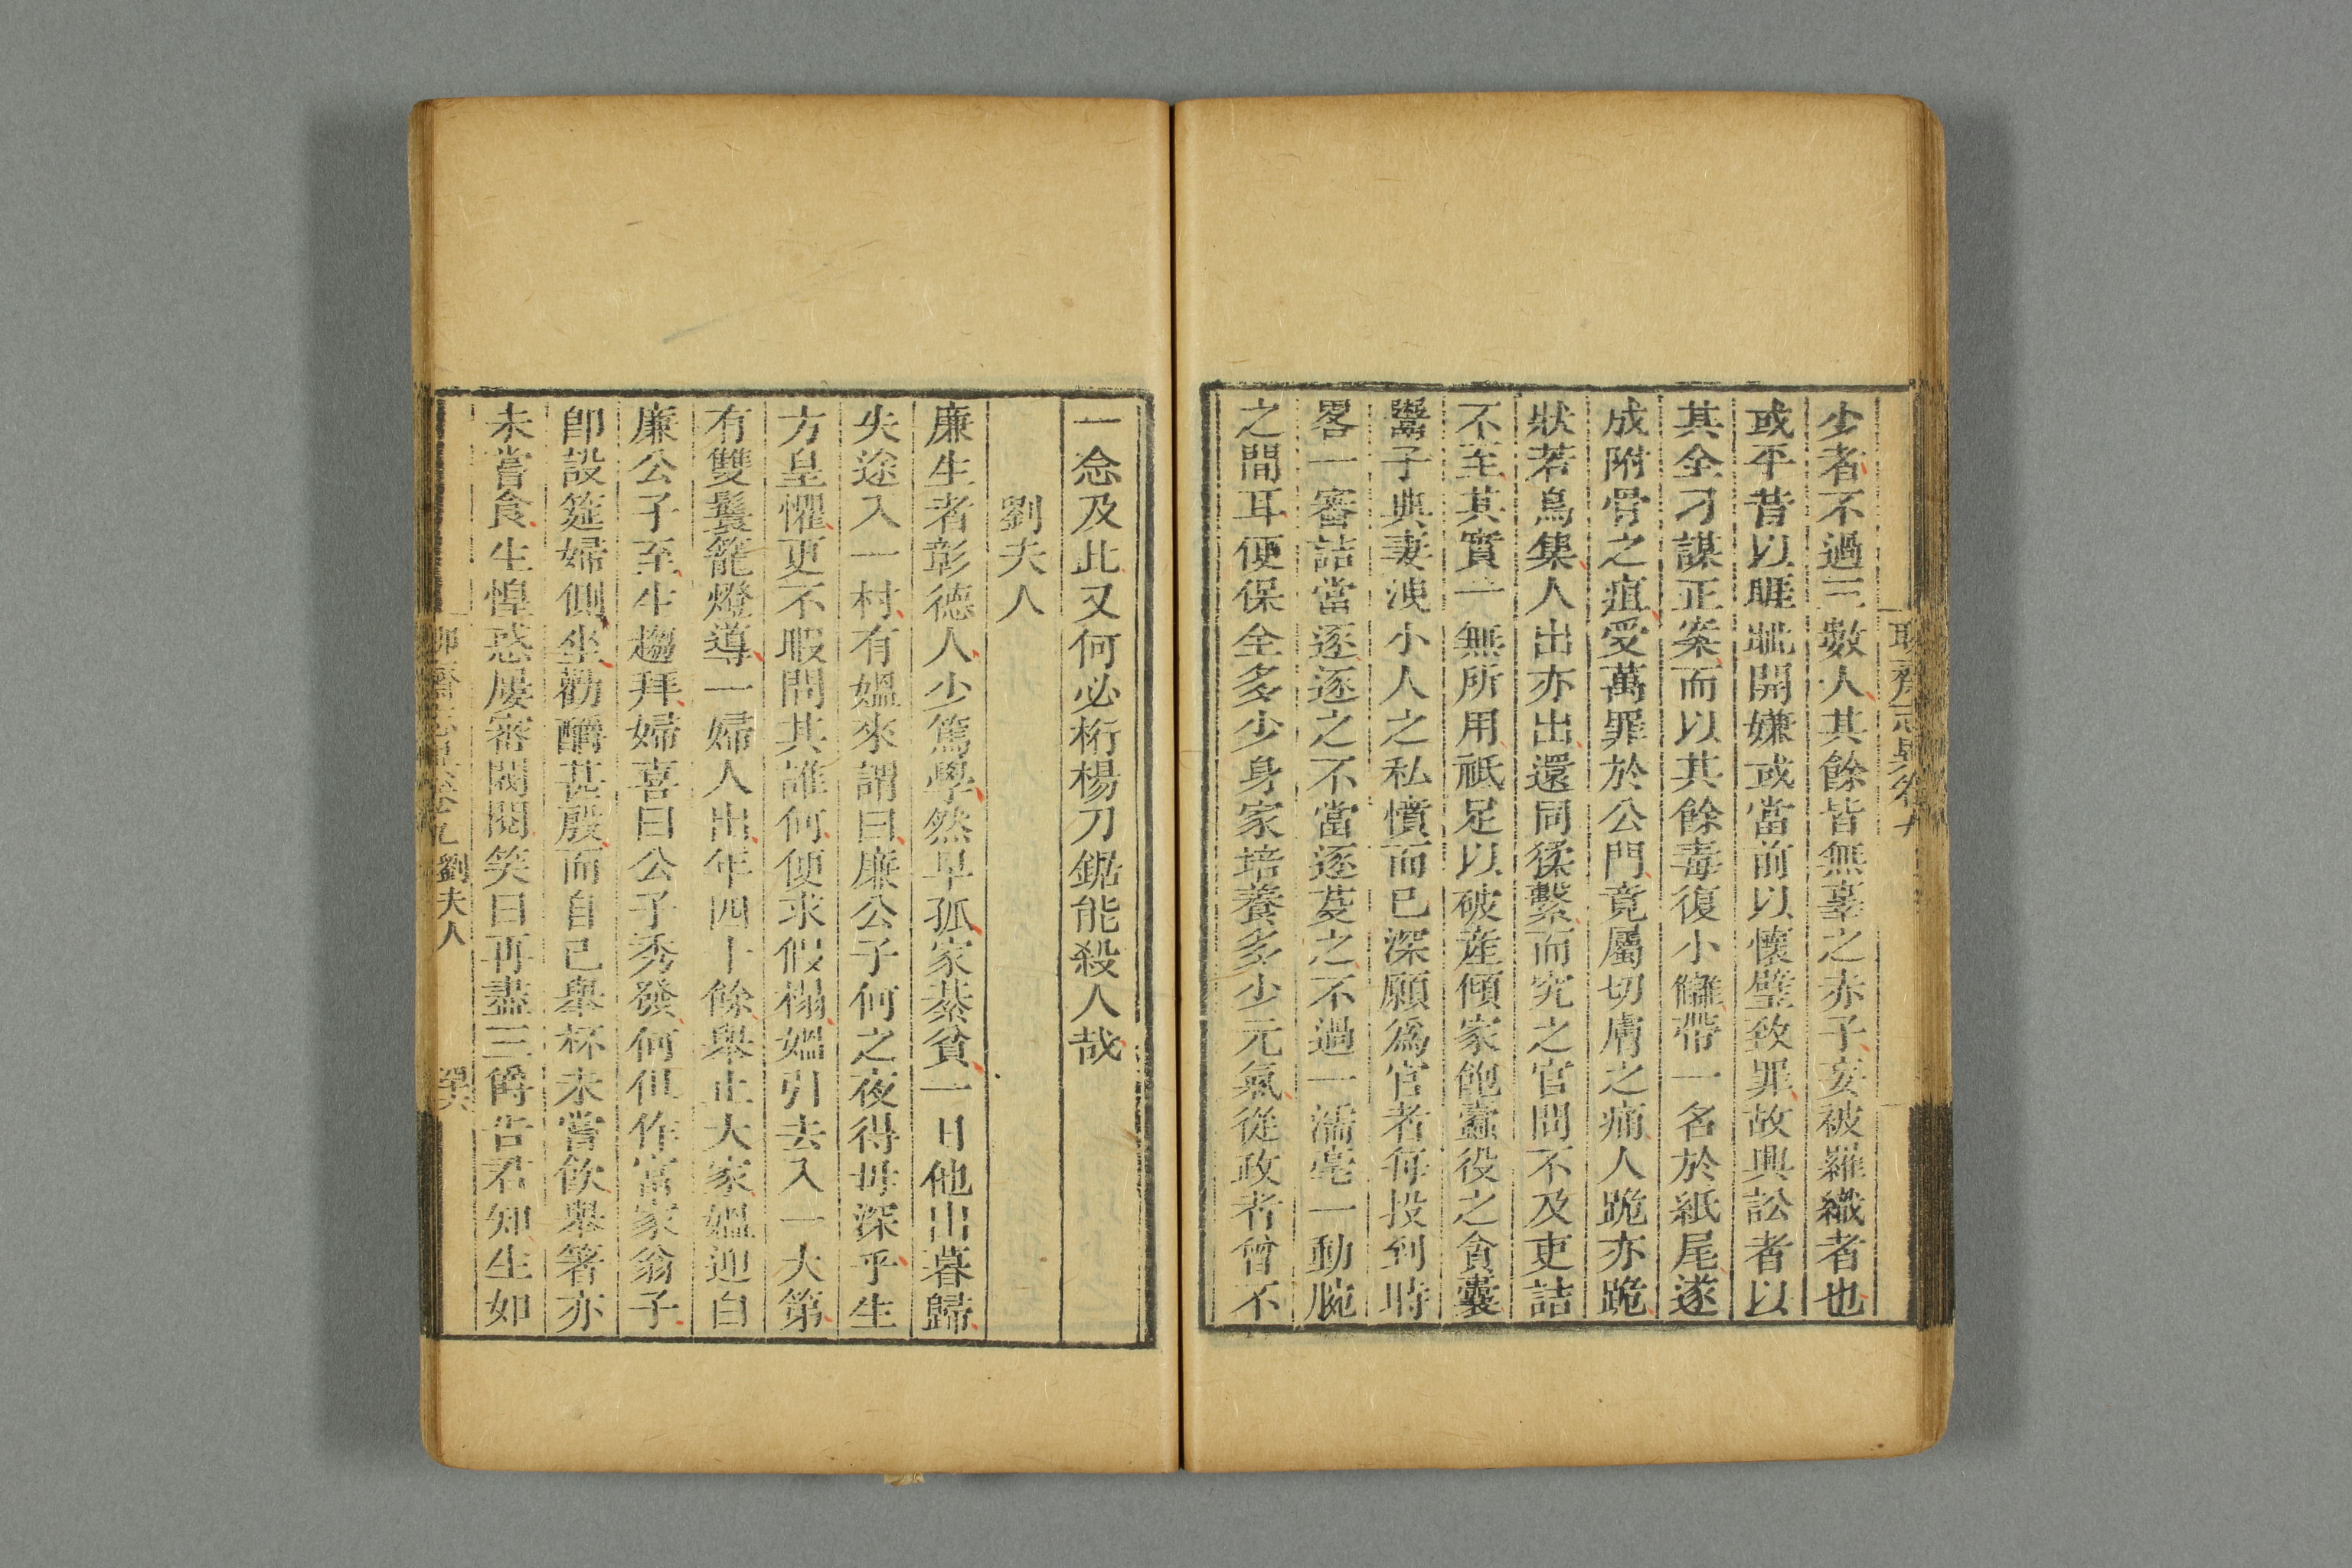 少者不過三數人其餘皆無辜之赤子妄被羅織者也
或平昔以睚眦開嫌或當前以懷璧致罪故興訟者以
其全刁謀正案而以其餘毒復小讎帶一名於紙尾遂
成附骨之疽受萬罪於公門竟屬切膚之痛人跪亦跪
狀若鳥集人出亦出還同猱繫而究之官問不及吏詰
不至其實一無所用祇足以破産傾家飽蠹役之貪囊
鬻子典妻洩小人之私憤而已深願爲官者每投到時
畧一審詰當逐逐之不當逐芟之不過一濡毫一動腕
之間耳便保全多少身家培養多少元氣從政者曾不
一念及此又何必桁楊刀鋸能殺人哉
劉夫人
廉生者彰德人少篤學然早孤家綦貧一日他出暮歸
失途入一村有媼來謂曰廉公子何之夜得毋深乎生
方皇懼更不暇問其誰何便求假榻媼引去入一大第
有雙鬟籠燈導一婦人出年四十餘舉止大家媼迎白
廉公子至生趨拜婦喜曰公子秀發何但作富家翁子
卽設筵婦側坐勸釂甚殷而自己舉杯未嘗飲舉箸亦
未嘗食生惶惑屡審閥閱笑曰再盡三爵告君知生如
劉夫人